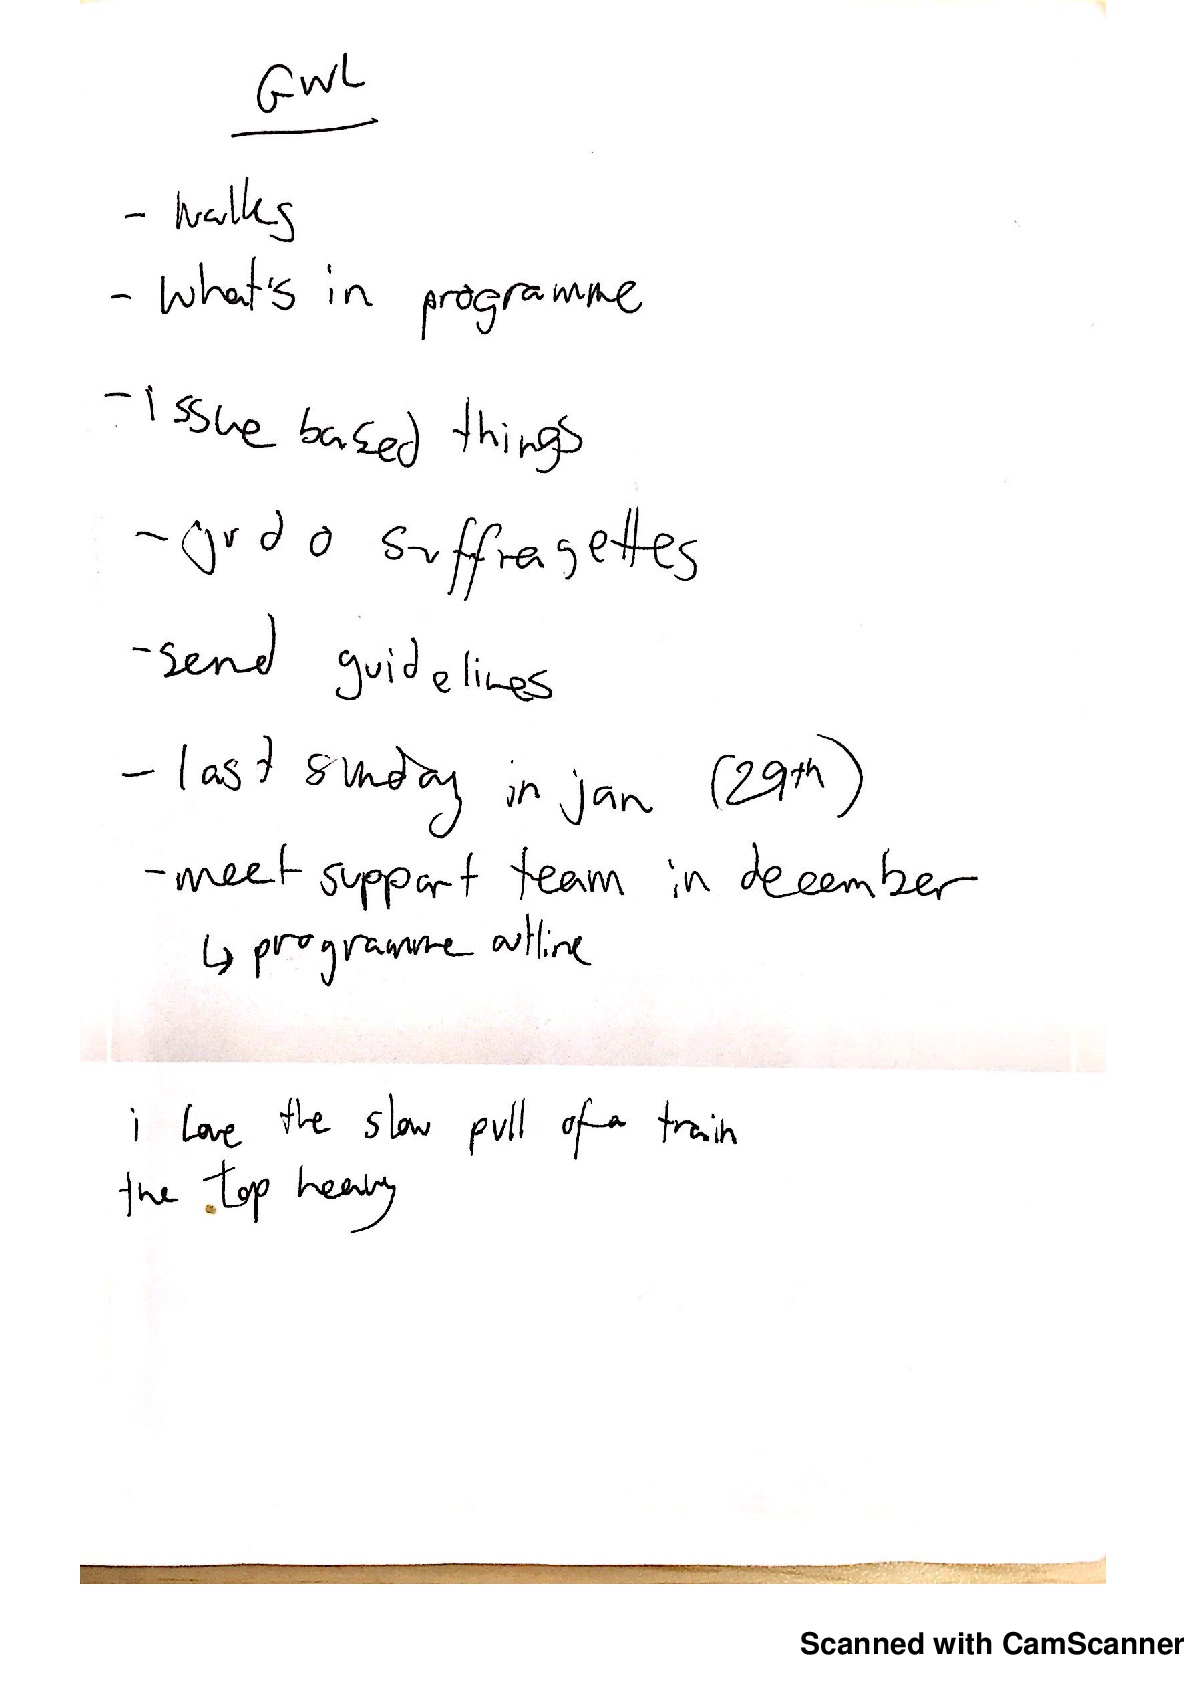 GWL
- walks
- what's in programme
- issue based things
- suffragettes
- send guidelines
- last sunday in jan (29th)
- meet support team in december
↳ programme outline
i love the slow pull of a train
the top heavy
Scanned with CamScanner